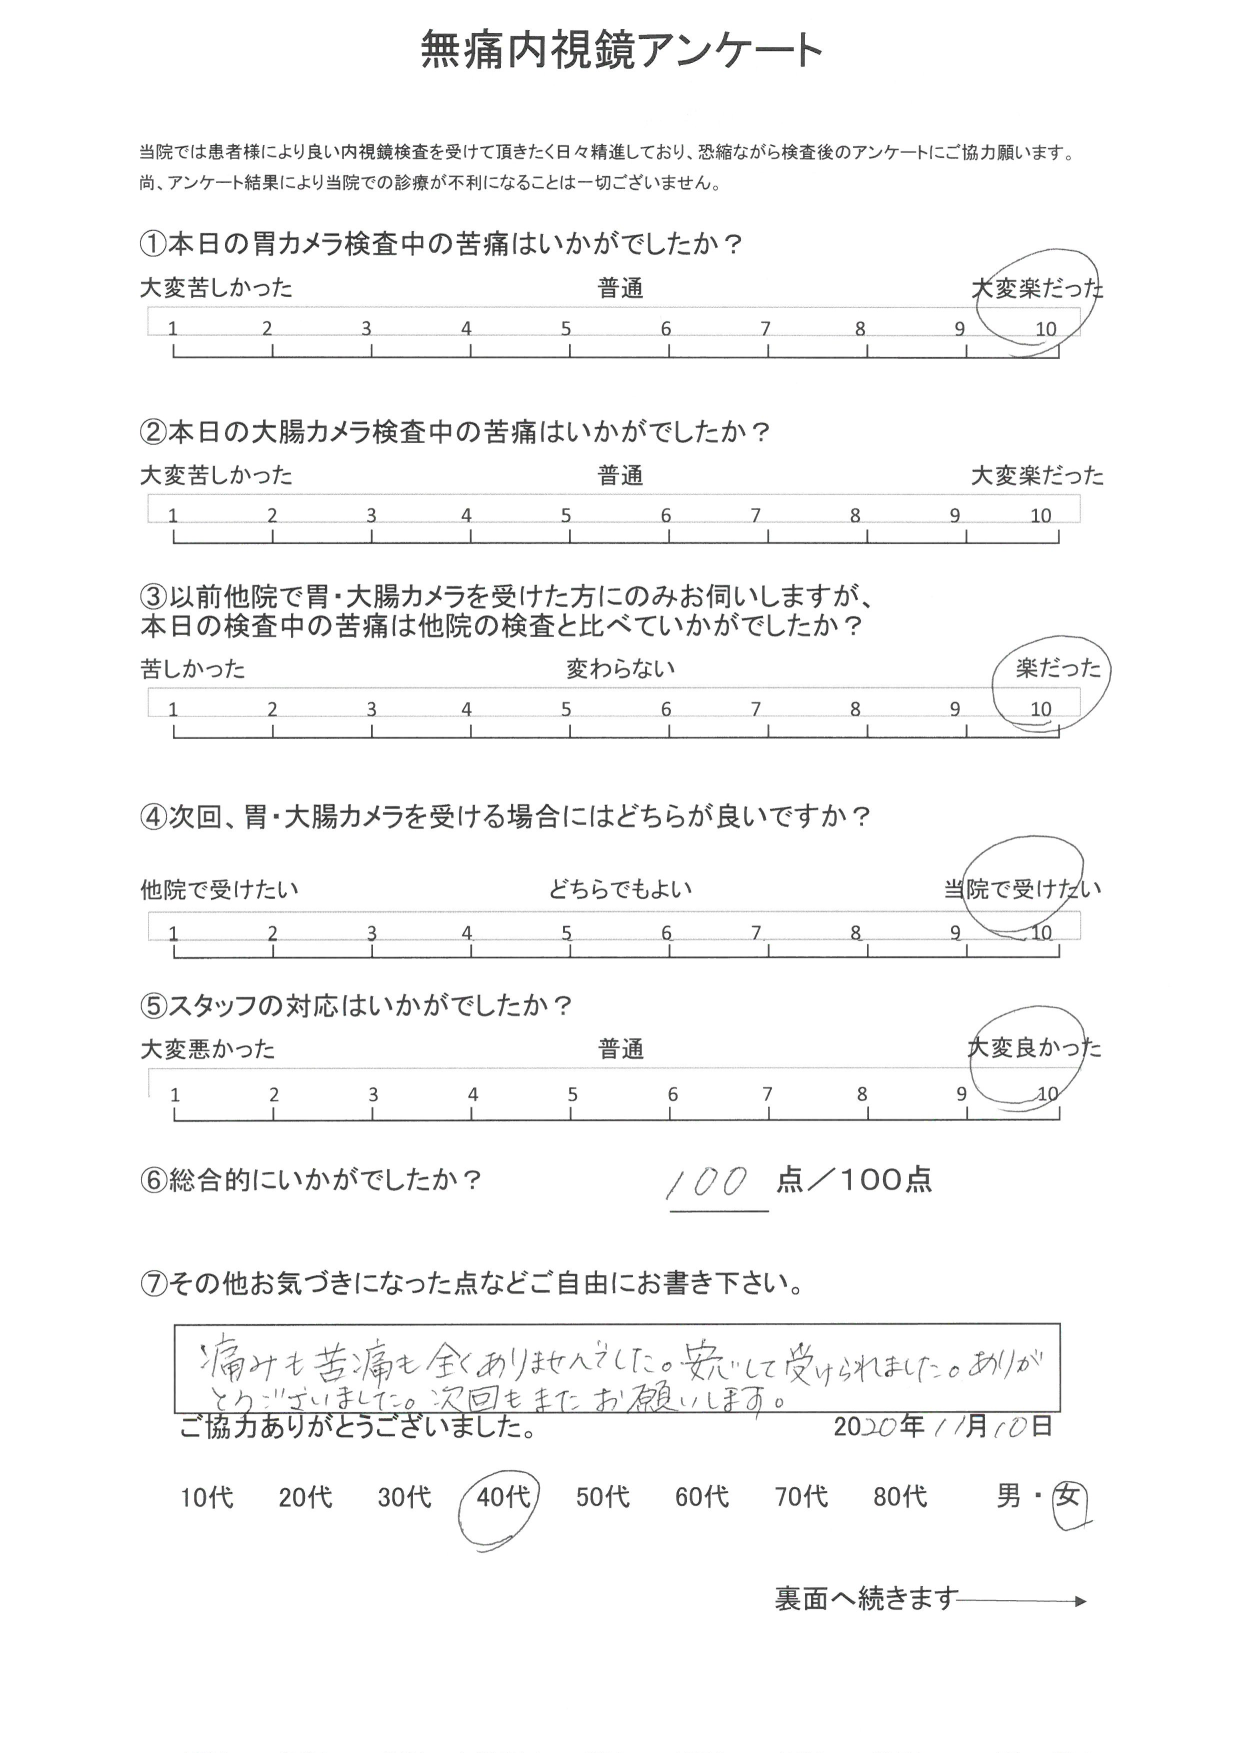 無痛内視鏡アンケート
当院では患者様により良い内視鏡検査を受けて頂きたく日々精進しており、恐縮ながら検査後のアンケートにご協力願います。
尚、アンケート結果により当院での診療が不利になることは一切ございません。
①本日の胃カメラ検査中の苦痛はいかがでしたか？
大変苦しかった 普通 大変楽だった
1 2 3 4 5 6 7 8 9 10
②本日の大腸カメラ検査中の苦痛はいかがでしたか？
大変苦しかった 普通 大変楽だった
1 2 3 4 5 6 7 8 9 10
③以前他院で胃・大腸カメラを受けた方にのみお伺いしますが、
本日の検査中の苦痛は他院の検査と比べていかがでしたか？
苦しかった 変わらない 楽だった
1 2 3 4 5 6 7 8 9 10
④次回、胃・大腸カメラを受ける場合にはどちらが良いですか？
他院で受けたい どちらでもよい 当院で受けたい
1 2 3 4 5 6 7 8 9 10
⑤スタッフの対応はいかがでしたか？
大変悪かった 普通 大変良かった
1 2 3 4 5 6 7 8 9 10
⑥総合的にいかがでしたか？ 100 点／100点
⑦その他お気づきになった点などご自由にお書き下さい。
痛みも苦痛も全くありませんでした。安心して受けられました。ありが
とうございました。次回もまたお願いします。
ご協力ありがとうございました。 2020年11月10日
10代 20代 30代 40代 50代 60代 70代 80代 男・女
裏面へ続きます